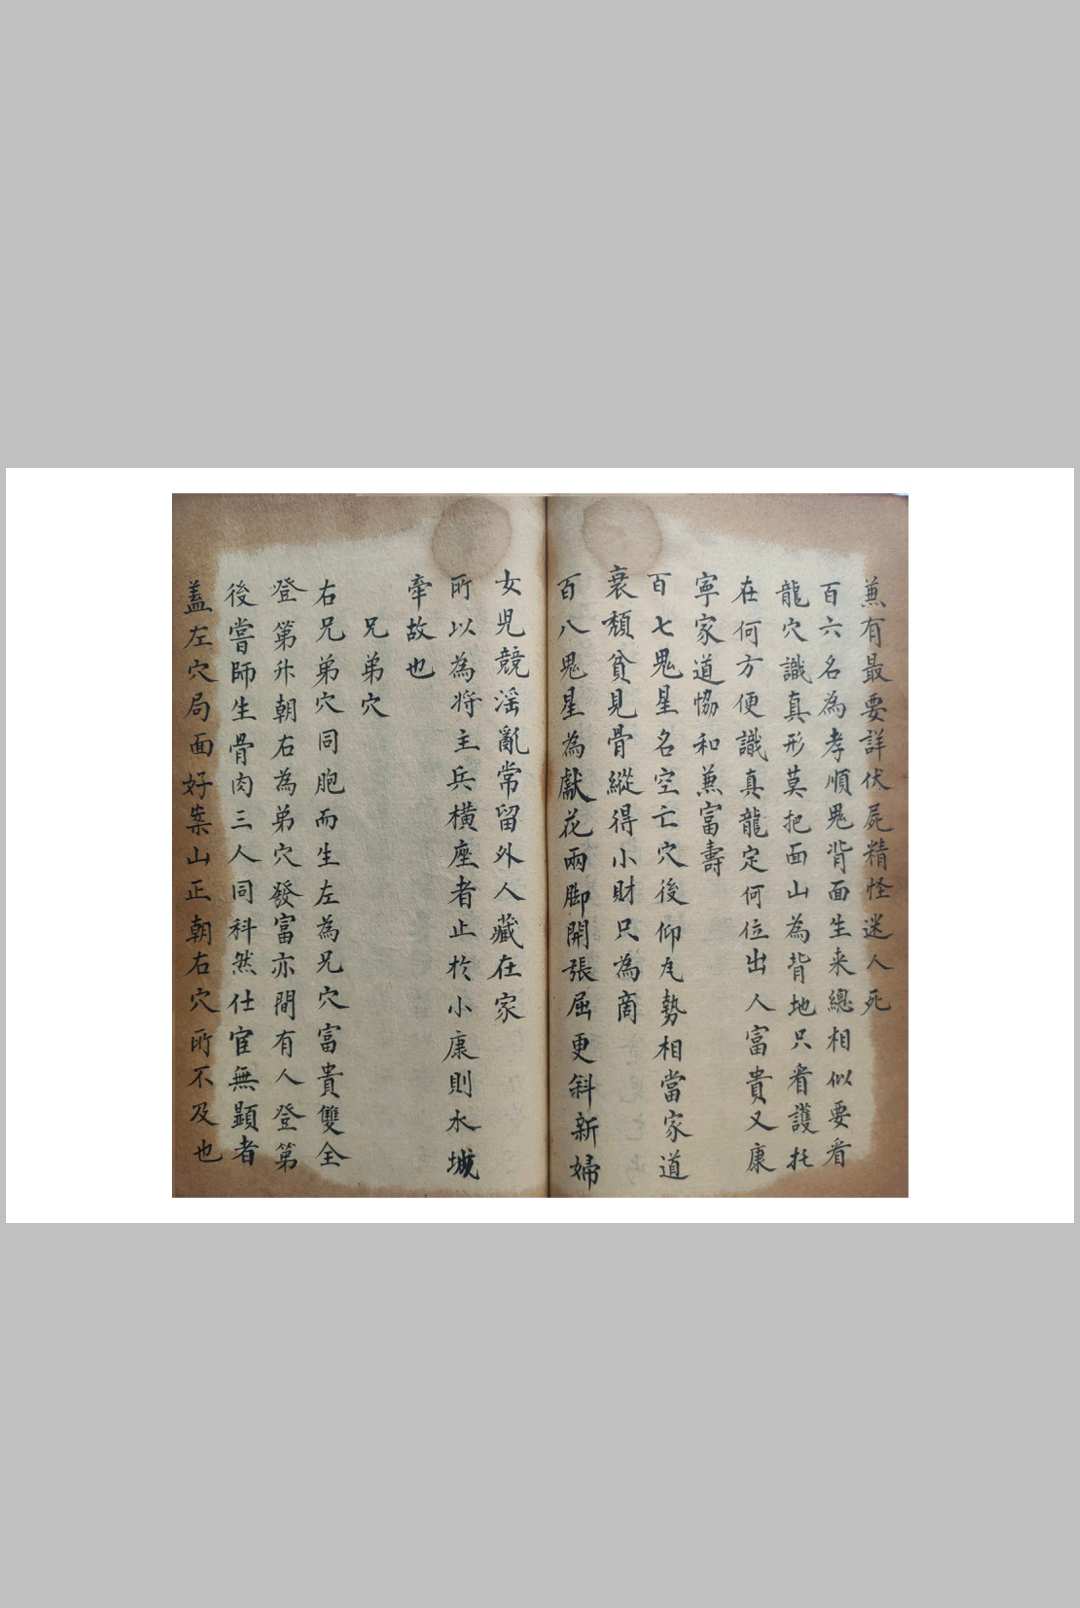 兼有最要詳伏屍精怪迷人死
百六名為孝順鬼背面生来總相似要看
龍穴識真形莫把面山為背地只看護托
在何方便識真龍定何位出人富貴又康
寧家道恊和兼富壽
百七鬼星名空亡穴後仰瓦勢相當家道
衰頹貧見骨縱得小財只為商
百八鬼星為獻花兩脚開張屈更斜新婦
女兒競滛亂常留外人藏在家
所以為将主兵橫座者止於小康則水城
牽故也
兄弟穴
右兄弟穴同胞而生左為兄穴富貴雙全
登第升朝右為弟穴發富亦間有人登第
後嘗師生骨肉三人同科然仕宦無顯者
蓋左穴局面好案山正朝右穴所不及也